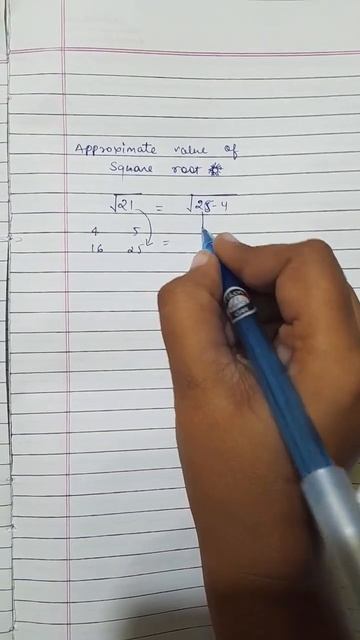 Approximate value of
Square root
√21 = √25-4
4 5
16 25 =